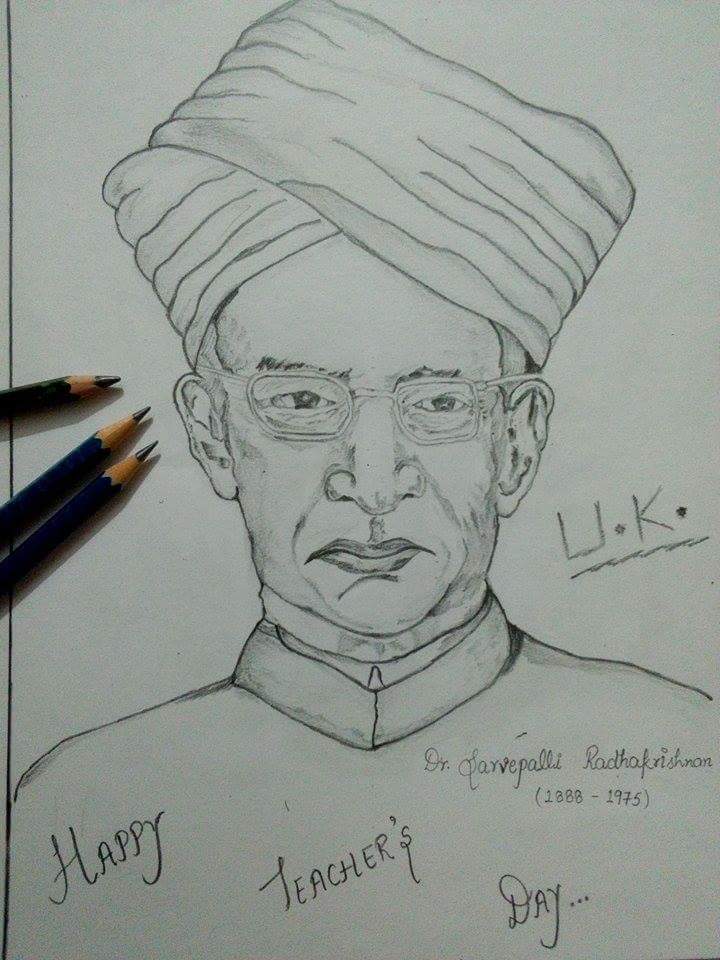 U.K.
Dr. Sarvepalli Radhakrishnan
(1888 - 1975)
HAPPY
TEACHER'S
DAY...